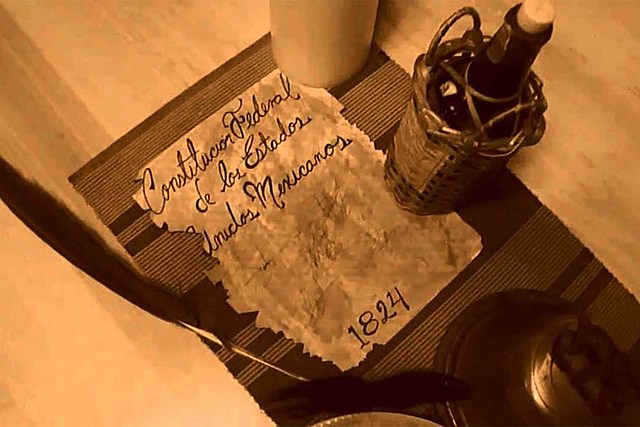 Constitucion Federal
de los Estados
Unidos Mexicanos
1824